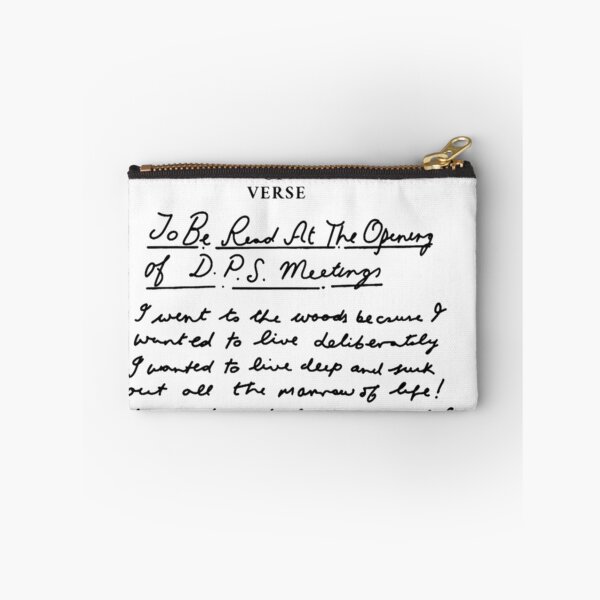 VERSE
To Be Read At The Opening
of D.P.S. Meetings
I went to the woods because I
wanted to live deliberately
I wanted to live deep and suck
out all the marrow of life!